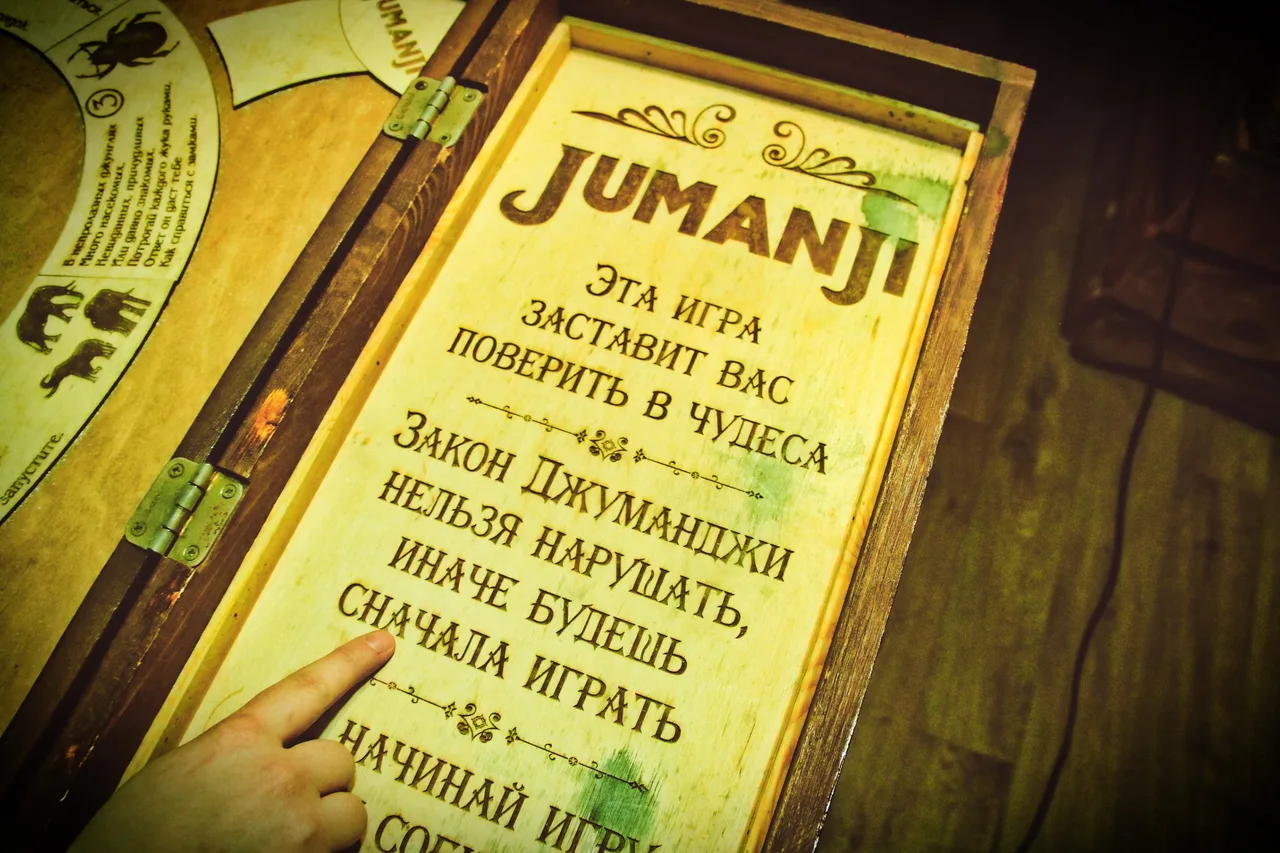 JUMANJI
③
В непролазных джунглях
Много насекомых,
Невиданных, причудливых
Или давно знакомых.
Потрогай каждого жука руками.
Ответ он даст тебе
Как справиться с замками.
запустите.
JUMANJI
ЭТА ИГРА
ЗАСТАВИТ ВАС
ПОВЕРИТЬ В ЧУДЕСА
ЗАКОН ДЖУМАНДЖИ
НЕЛЬЗЯ НАРУШАТЬ,
ИНАЧЕ БУДЕШЬ
СНАЧАЛА ИГРАТЬ
НАЧИНАЙ ИГРУ